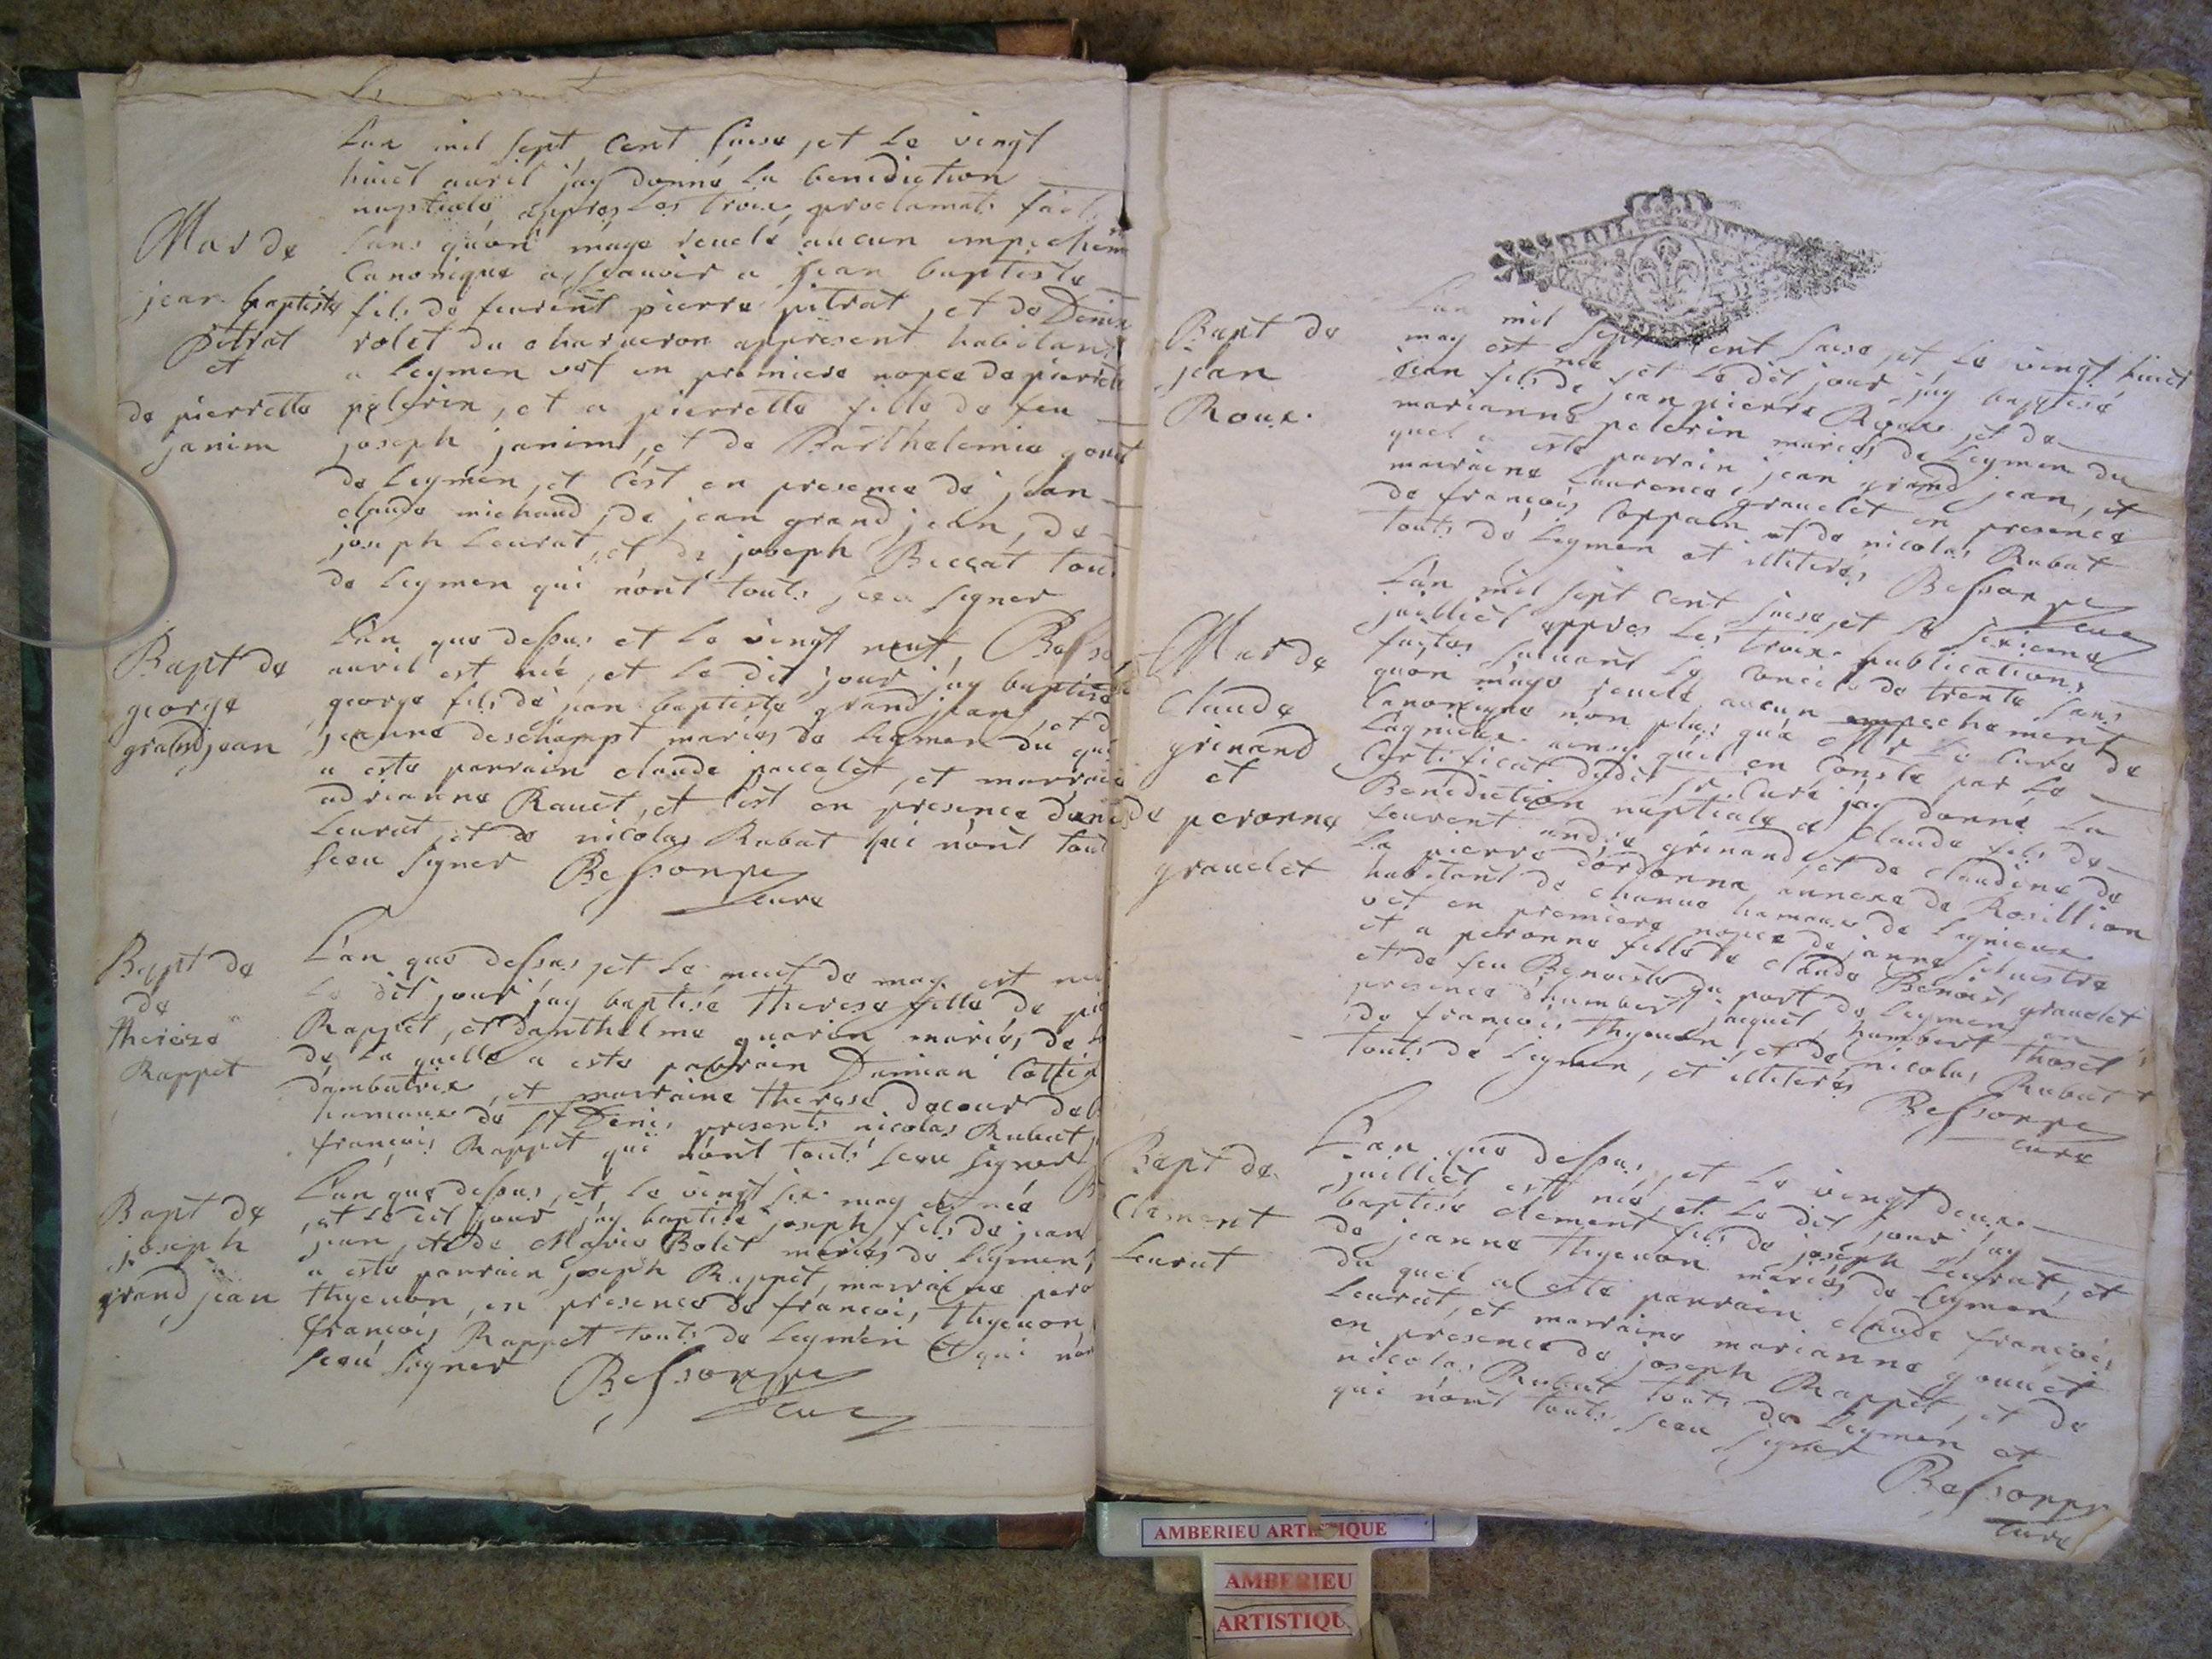 L'an mil sept cent saise et le vingt
huict auril j'ay donné la benediction
nuptiale appres les troix proclamat. fait.
Mar de
jean baptiste
pitrat
et
de pierrette
janim
sans qu'on m'aye reuelé aucun impechem
Canonique asscauoir a jean baptiste
fils de feurent pierre pitrat et de Denise
rolet du charueron appresent habitant
a Leymen vet en premiere nopce de pierrette
pelerin, et a pierrette fille de feu
joseph janim, et de Barthelemie gonet
de Leymen, et c'est en presence de jean
claude michaud, de jean grand jean, de
joseph Leurat, et de joseph Beccat tous
de Leymen qui n'ont touts sceu signer
Bapt de
george
grand jean
L'an que dessus et le vingt neuf
auril est né, et le dit jour j'ay baptisé
george fils de jean baptiste grand jean, et d
jeanne deschampt mariés de Leymen du qu
a esté parrain claude paccalet, et marraine
adrianne Rauet, et c'est en presence d'
Leurat, et de nicolas Rubat qui n'ont tout
sceu signer Bessonpe
cure
Bapt de
de
therese
Rappet
L'an que dessus et le neuf de may est né
le dit jour j'ay baptisé therese fille de pi
Rappet, et d'anthelme guaron mariés de L
de la quelle a esté parrain Damian Cottin
d'ambutrix, et marraine therese decour de
hameaux de St Denis presents nicolas Rubat
françois Rappet qui n'ont touts sceu signer
Bapt de
joseph
grand jean
L'an que dessus, et le vingt six may est né
et le dit jour j'ay baptisé joseph fils de jean
jean, et de Marie Bolet mariés de Leymen
a esté parrain joseph Rappet, marraine pero
thyeuon, en presence de françois thyeuon
françois Rappet touts de Leymen et qui n'on
sceu signer Bessonpe
cure
Bapt de
jean
Roux.
L'an mil sept cent saise, et le vingt huict
may est né et le dit jour j'ay baptisé
jean fils de jean pierre Roux et de
marianne pelerin mariés de Leymen du
quel a esté parrain jean grand jean, et
marraine Laurence grauelet en presence
de françois Coppain et de nicolas Rubat
touts de Leymen et illiterés Bessonpe
cure
Mar de
Claude
grinand
et
de peronne
grauelet
L'an mil sept cent saise, et le sixieme
juilliet appres les troix publications
faites suiuant le Concile de trente sans
quon m'aye reuelé aucun empechement
Canonique non plus qu'a Mr le Cure de
Lagnieux ainsi qu'il en Conste par le
Certificat dudit Sr Curé j'ay donné la
Benediction nuptiale a Claude fils de
feurent andré grinand, et de claudine de
la pierre d'ordonna annexe de Rosillion
habitant de chanue hameau de Legnieux
vet en premiere nopce de janne siluestre
et a peronne fille de claude Benoist grauelet
et de feu Benoiste du port de Leymen en
presence d'humbert jacquet, humbert thoset
de françois thyeuon, et de nicolas Rubat
touts de Leymen, et illiterés Bessonpe
cure
Bapt de
Clement
Leurat
L'an que dessus, et le vingt deux
juilliet est né, et le dit jour j'ay
baptisé clement fils de joseph Leurat, et
de jeanne thyeuon mariés de Leymen
du quel a esté parrain claude françois
Leurat, et marraine marianne gounet
en presence de joseph Rappet, et de
nicolas Rubat touts de Leymen et
qui n'ont touts sceu signer
Bessonpe
cure
AMBERIEU ARTISTIQUE
AMBERIEU
ARTISTIQU